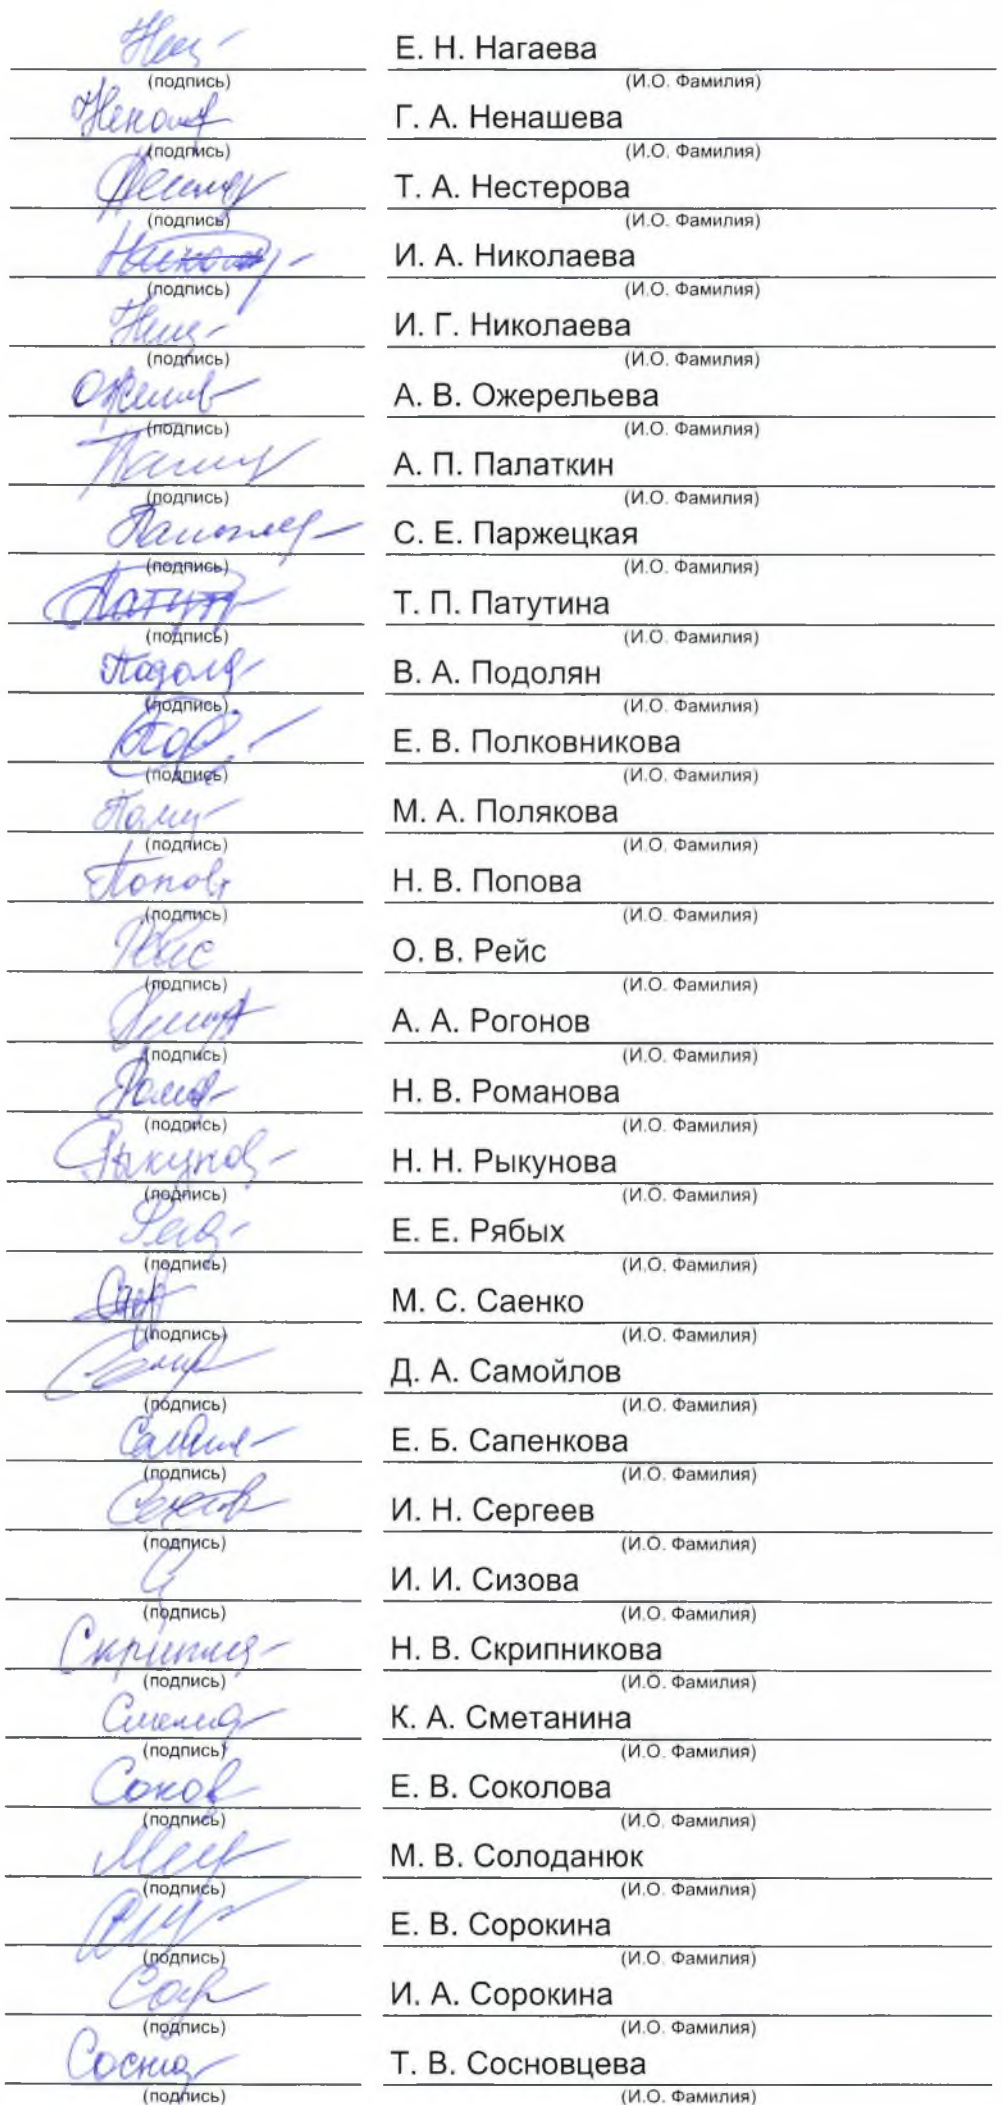 Е. Н. Нагаева
(подпись) (И.О. Фамилия)
Г. А. Ненашева
(подпись) (И.О. Фамилия)
Т. А. Нестерова
(подпись) (И.О. Фамилия)
И. А. Николаева
(подпись) (И.О. Фамилия)
И. Г. Николаева
(подпись) (И.О. Фамилия)
А. В. Ожерельева
(подпись) (И.О. Фамилия)
А. П. Палаткин
(подпись) (И.О. Фамилия)
С. Е. Паржецкая
(подпись) (И.О. Фамилия)
Т. П. Патутина
(подпись) (И.О. Фамилия)
В. А. Подолян
(подпись) (И.О. Фамилия)
Е. В. Полковникова
(подпись) (И.О. Фамилия)
М. А. Полякова
(подпись) (И.О. Фамилия)
Н. В. Попова
(подпись) (И.О. Фамилия)
О. В. Рейс
(подпись) (И.О. Фамилия)
А. А. Рогонов
(подпись) (И.О. Фамилия)
Н. В. Романова
(подпись) (И.О. Фамилия)
Н. Н. Рыкунова
(подпись) (И.О. Фамилия)
Е. Е. Рябых
(подпись) (И.О. Фамилия)
М. С. Саенко
(подпись) (И.О. Фамилия)
Д. А. Самойлов
(подпись) (И.О. Фамилия)
Е. Б. Сапенкова
(подпись) (И.О. Фамилия)
И. Н. Сергеев
(подпись) (И.О. Фамилия)
И. И. Сизова
(подпись) (И.О. Фамилия)
Н. В. Скрипникова
(подпись) (И.О. Фамилия)
К. А. Сметанина
(подпись) (И.О. Фамилия)
Е. В. Соколова
(подпись) (И.О. Фамилия)
М. В. Солоданюк
(подпись) (И.О. Фамилия)
Е. В. Сорокина
(подпись) (И.О. Фамилия)
И. А. Сорокина
(подпись) (И.О. Фамилия)
Т. В. Сосновцева
(подпись) (И.О. Фамилия)